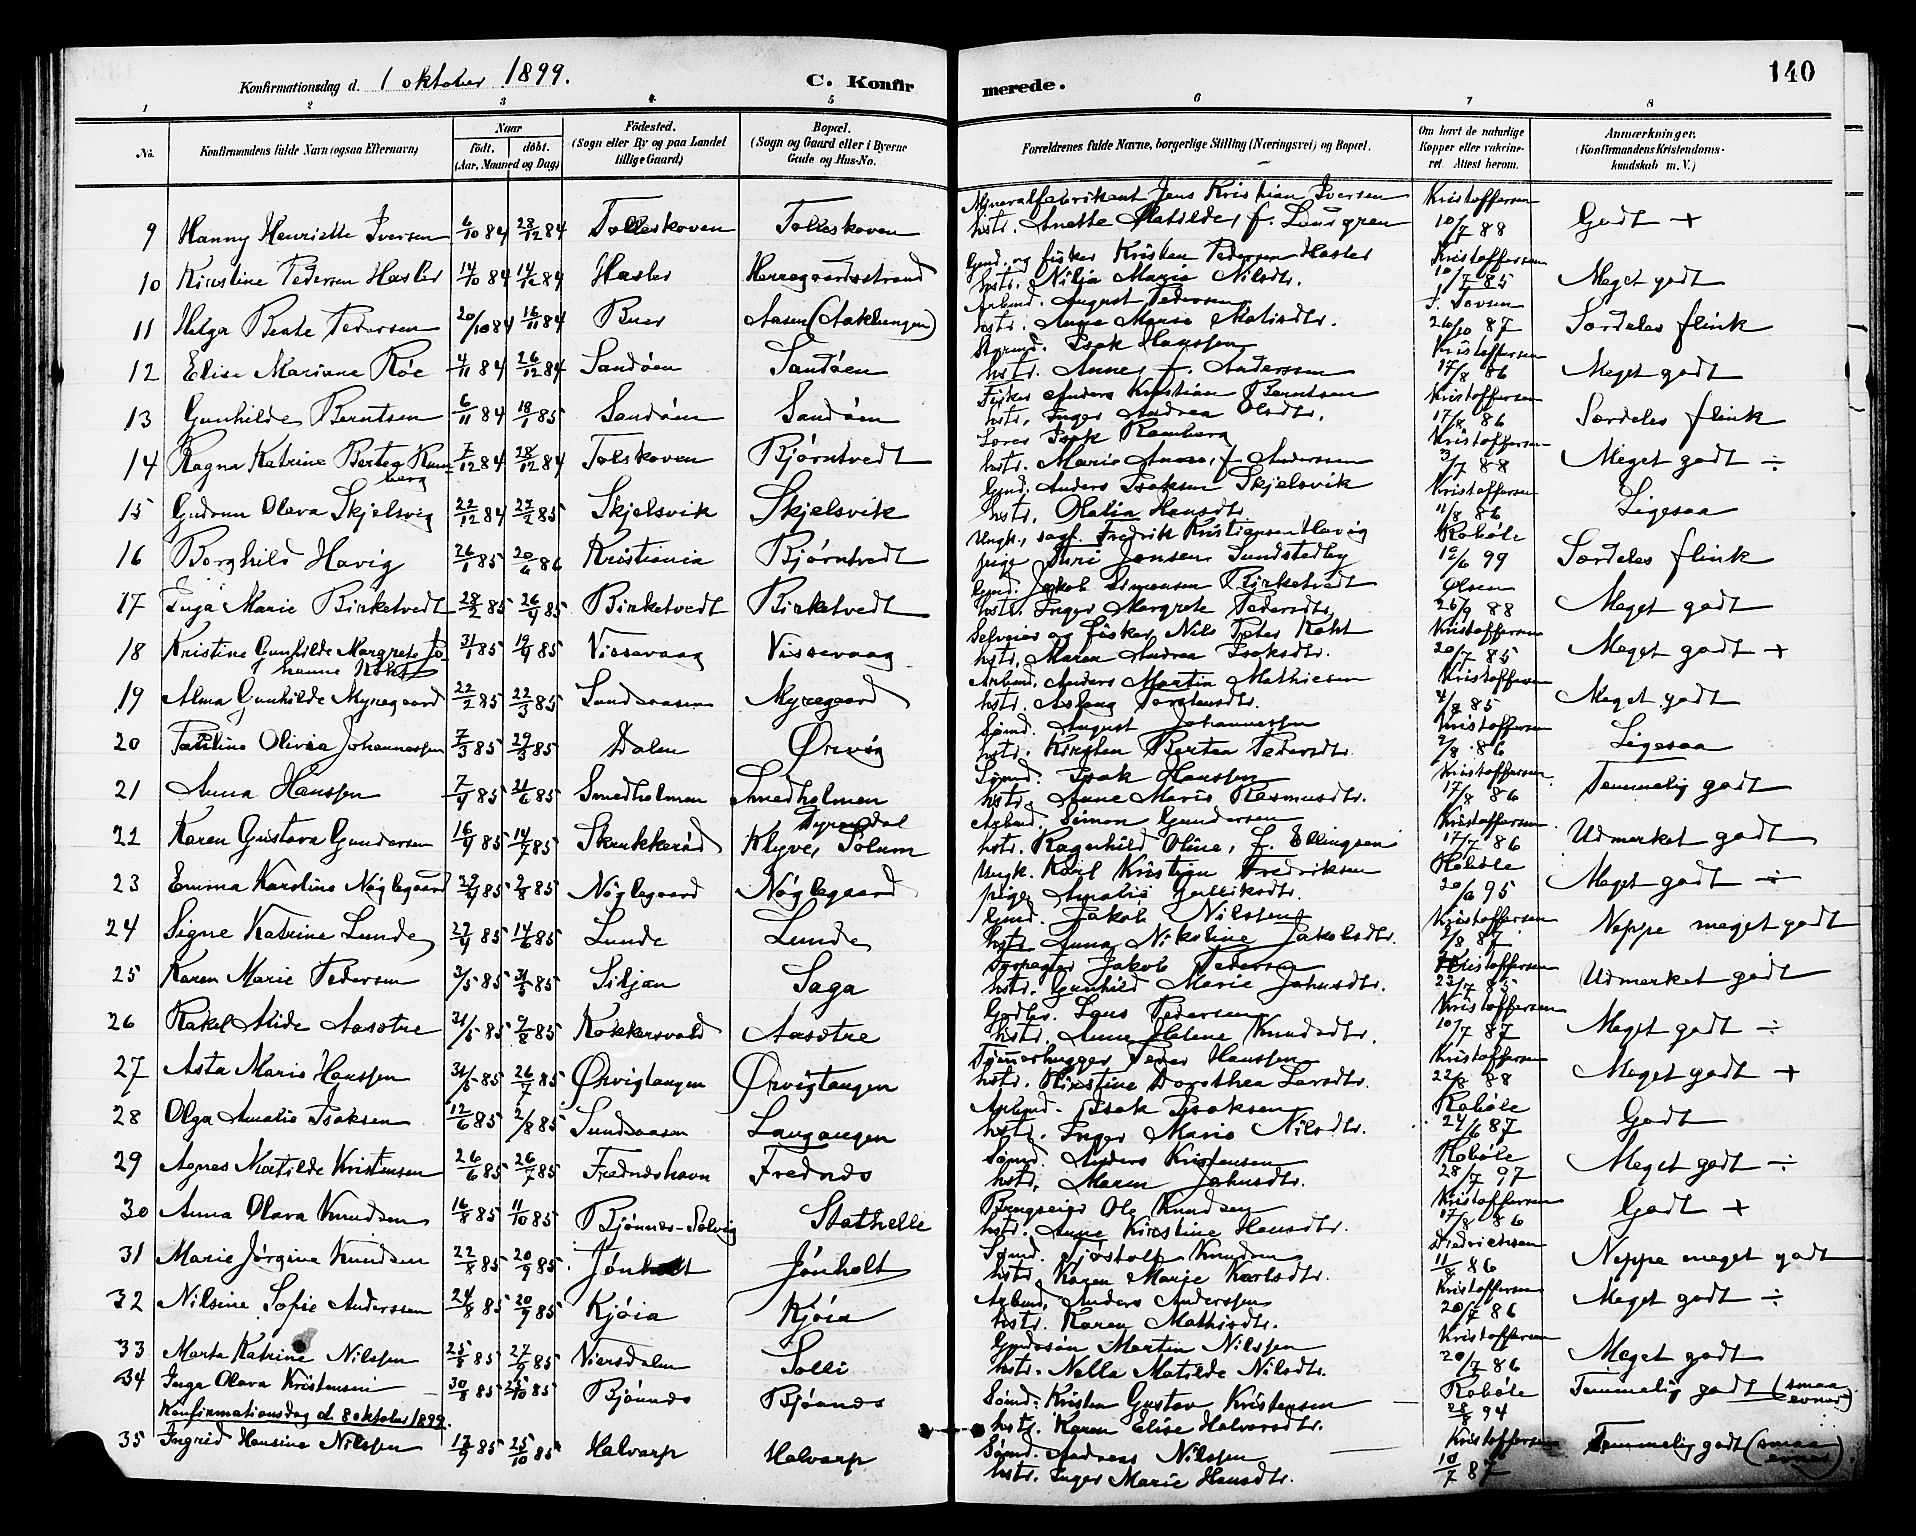 Konfirmationsdag d. 1 oktober 1899.
C. Konfirmerede.
140
1 2 3 4 5 6 7 8
No.
Konfirmandens fulde Navn (ogsaa Efternavn)
Naar
født, døbt.
(Aar, Maaned og Dag)
Fødested.
(Sogn eller By og paa Landet tillige Gaard)
Bopæl.
(Sogn og Gaard eller i Byerne Gade og Hus-No.
Forældrenes fulde Navne, borgerlige Stilling (Næringsvei) og Bopæl.
Om havt de naturlige Kopper eller vaccineret. Attest herom.
Anmærkninger.
(Konfirmandens Kristendomskundskab m. V.)
9 Hanny Henriette Iversen 6/10 84 28/12 84 Tolleskoven Tolleskoven Mineralfabrikant Jens Kristian Iversen Kristoffersen Godt +
hstr. Anette Matilde, f. Lousgren 10/7 88
10 Kirstine Pedersen Hasler 14/10 84 14/12 84 Hasler Herregaardsstrand Gmd. og fisker Kristen Pedersen Hasler Kristoffersen Meget godt
hstr. Nilia Marie Nilsdtr. 10/7 85
11 Helga Beate Pedersen 20/10 84 16/11 84 Buer Aasen (Aaklungen) Arbmd. August Pedersen Særdeles flink
hstr. Anne Marie Matisdtr. 26/10 87
12 Elise Mariane Røe 4/11 84 26/12 84 Sandøen Sandøen Styrmd. Isak Hanssen Kristoffersen Meget godt
hstr. Anne, f. Andersen 17/8 86
13 Gunhilde Berntsen 6/11 84 18/1 85 Sandøen Sandøen Fisker Anders Kristian Berntsen Kristoffersen Særdeles flink
hstr. Inger Andrea Olsdtr. 17/8 86
14 Ragna Katrine Bertea Ramberg 7/12 84 28/12 84 Tolskoven Bjørntvedt Isak Ramberg Kristoffersen Meget godt ÷
hstr. Marie Anne, f. Andersen 3/7 88
15 Gudrun Olava Skjelsvig 22/12 84 22/2 85 Skjelsvik Skjelsvik Gmd. Anders Isaksen Skjelsvik Kristoffersen Ligesaa
hstr. Olalia Hansdtr. 11/8 86
16 Borghild Havig 26/1 85 20/6 86 Kristiania Bjørntvedt Ungk., sagf. Fredrik Kristiansen Havig Robøle Særdeles flink
pige Jensen Sundstedby 12/6 99
17 Inga Marie Birketvedt 28/2 85 26/4 85 Birketvedt Birketvedt Gmd. Jakob Simonsen Birketvedt Olsen Meget godt
hstr. Inger Margrete Pedersdtr. 26/9 88
18 Kristine Gunhilde Margrete Johanne Kokt 31/1 85 19/4 85 Vissevaag Vissevaag Selveier og fisker Nils Peter Kokt Kristoffersen Meget godt +
hstr. Maren Andrea Isaksdtr. 20/7 85
19 Alma Gunhilde Myregaard 22/2 85 22/3 85 Sundsaasen Myregaard Arbmd. Anders Martin Mathiesen Kristoffersen Meget godt
hstr. Aslaug Torstensdtr. 4/8 85
20 Pauline Olivia Johannessen 7/3 85 29/3 85 Dalen Ørvig Sømd. August Johannessen Kristoffersen Ligesaa
hstr. Kirsten Bertea Pedersdtr. 2/8 86
21 Anna Hanssen 7/4 85 21/6 85 Smedholmen Smedholmen Sømd. Isak Hanssen Kristoffersen Temmelig godt
hstr. Anne Marie Rasmusdtr. 17/8 86
22 Karen Gustava Gundersen 16/4 85 14/7 85 Skrukkerød Klyve, Solum Arbmd. Simon Gundersen Kristoffersen Udmerket godt
hstr. Ragnhild Oline, f. Ellingsen 17/7 86
23 Emma Karoline Nøglegaard 2/8 85 Nøglegaard Nøglegaard Ungk. Karl Kristian Fredriksen Robøle Meget godt ÷
pige Amalie Gulliksdtr. 20/6 95
24 Signe Katrine Lunde 27/4 85 14/6 85 Lunde Lunde Gmd. Jakob Nilssen Kristoffersen Neppe meget godt
hstr. Anna Nikoline Jakobsdtr. 2/8 87
25 Karen Marie Pedersen 3/5 85 31/5 85 Siljan Saga Jakob Pedersen Kristoffersen Udmerket godt
hstr. Gunhild Marie Johnsdtr. 23/7 85
26 Rakel Alide Aasstre 21/5 85 9/8 85 Kokkersvold Aasstre Godbr. Lars Pedersen Kristoffersen Meget godt ÷
hstr. Anne Helene Knudsdtr. 10/7 87
27 Asta Marie Hanssen 31/5 85 26/7 85 Ørvigtangen Ørvigtangen Tømmerhugger Peder Hanssen Kristoffersen Meget godt +
hstr. Kirstine Dorothea Larsdtr. 22/8 88
28 Olga Amalie Isaksen 12/6 85 2/8 85 Sundsaasen Langangen Arbmd. Isak Isaksen Robøle Godt
hstr. Inger Marie Nilsdtr. 24/6 87
29 Agnes Matilde Kristensen 26/6 85 26/7 85 Frednæshavn Frednæs Sømd. Anders Kristensen Robøle Meget godt ÷
hstr. Maren Johnsdtr. 28/7 97
30 Anna Olava Knudsen 16/8 85 11/10 85 Bjønnes-Solvig Stathelle Brugseier Ole Knudsen Kristoffersen Godt +
hstr. Anne Kirstine Hansdtr. 17/8 86
31 Marie Jørgine Knudsen 22/8 85 20/9 85 Jønholt Jønholt Sømd. Gjøstolf Knudsen Diedrichsen Neppe meget godt
hstr. Karen Marie Karlsdtr. 11/8 86
32 Nilsine Sofie Anderssen 24/8 85 20/9 85 Kjøia Kjøia Arbmd. Anders Anderssen Kristoffersen Meget godt ÷
hstr. Karen Mathisdtr. 20/7 86
33 Marta Katrine Nilssen 25/8 85 27/9 85 Viersdalen Solli Gaardssøn Martin Nilssen Kristoffersen Meget godt
hstr. Nella Matilde Nilsdtr. 20/7 86
34 Inga Olava Kristensen 30/8 85 25/10 85 Bjønnæs Bjønnæs Sømd. Kristen Gustav Kristensen Robøle Temmelig godt (smaa evner)
hstr. Karen Elise Halvorsdtr. 28/8 94
Konfirmationsdag d. 8 oktober 1899.
35 Ingrid Hansine Nilssen 17/9 85 25/10 85 Halvarp Halvarp Sømd. Andreas Nilssen Kristoffersen Temmelig godt (smaa evner)
hstr. Inger Marie Hansdtr. 10/7 87